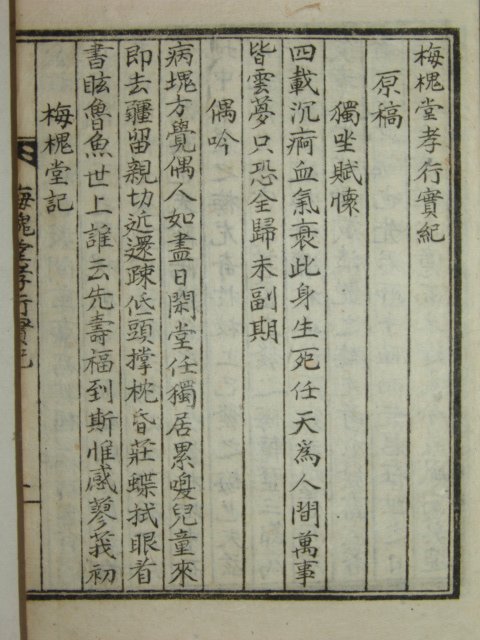 梅槐堂孝行實紀
原稿
獨坐賦懷
四載沉痾血氣衰此身生死任天爲人間萬事
皆雲夢只恐全歸未副期
偶吟
病塊方覺偶人如盡日閑堂任獨居累喚兒童來
即去疆留親切近還踈低頭撑枕昏莊蝶拭眼看
書眩魯魚世上誰云先壽福到斯惟感蓼莪初
梅槐堂記
梅槐堂孝行實紀